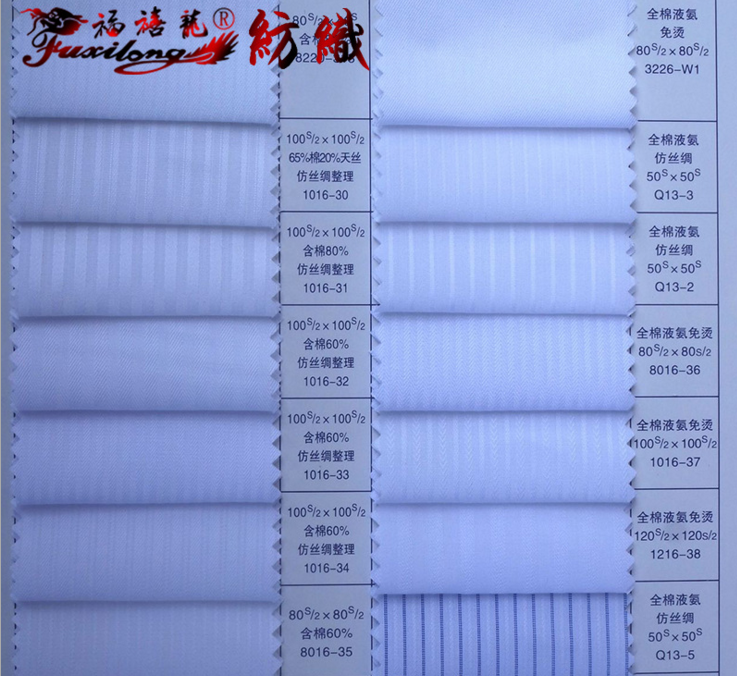 福禧龍® 紡織
Fuxilong
全棉液氨
免烫
80S/2×80S/2
3226-W1
100S/2×100S/2
65%棉20%天丝
仿丝绸整理
1016-30
全棉液氨
仿丝绸
50S×50S
Q13-3
100S/2×100S/2
含棉80%
仿丝绸整理
1016-31
全棉液氨
仿丝绸
50S×50S
Q13-2
100S/2×100S/2
含棉60%
仿丝绸整理
1016-32
全棉液氨免烫
80S/2×80S/2
8016-36
100S/2×100S/2
含棉60%
仿丝绸整理
1016-33
全棉液氨免烫
100S/2×100S/2
1016-37
100S/2×100S/2
含棉60%
仿丝绸整理
1016-34
全棉液氨免烫
120S/2×120S/2
1216-38
80S/2×80S/2
含棉60%
8016-35
全棉液氨
仿丝绸
50S×50S
Q13-5